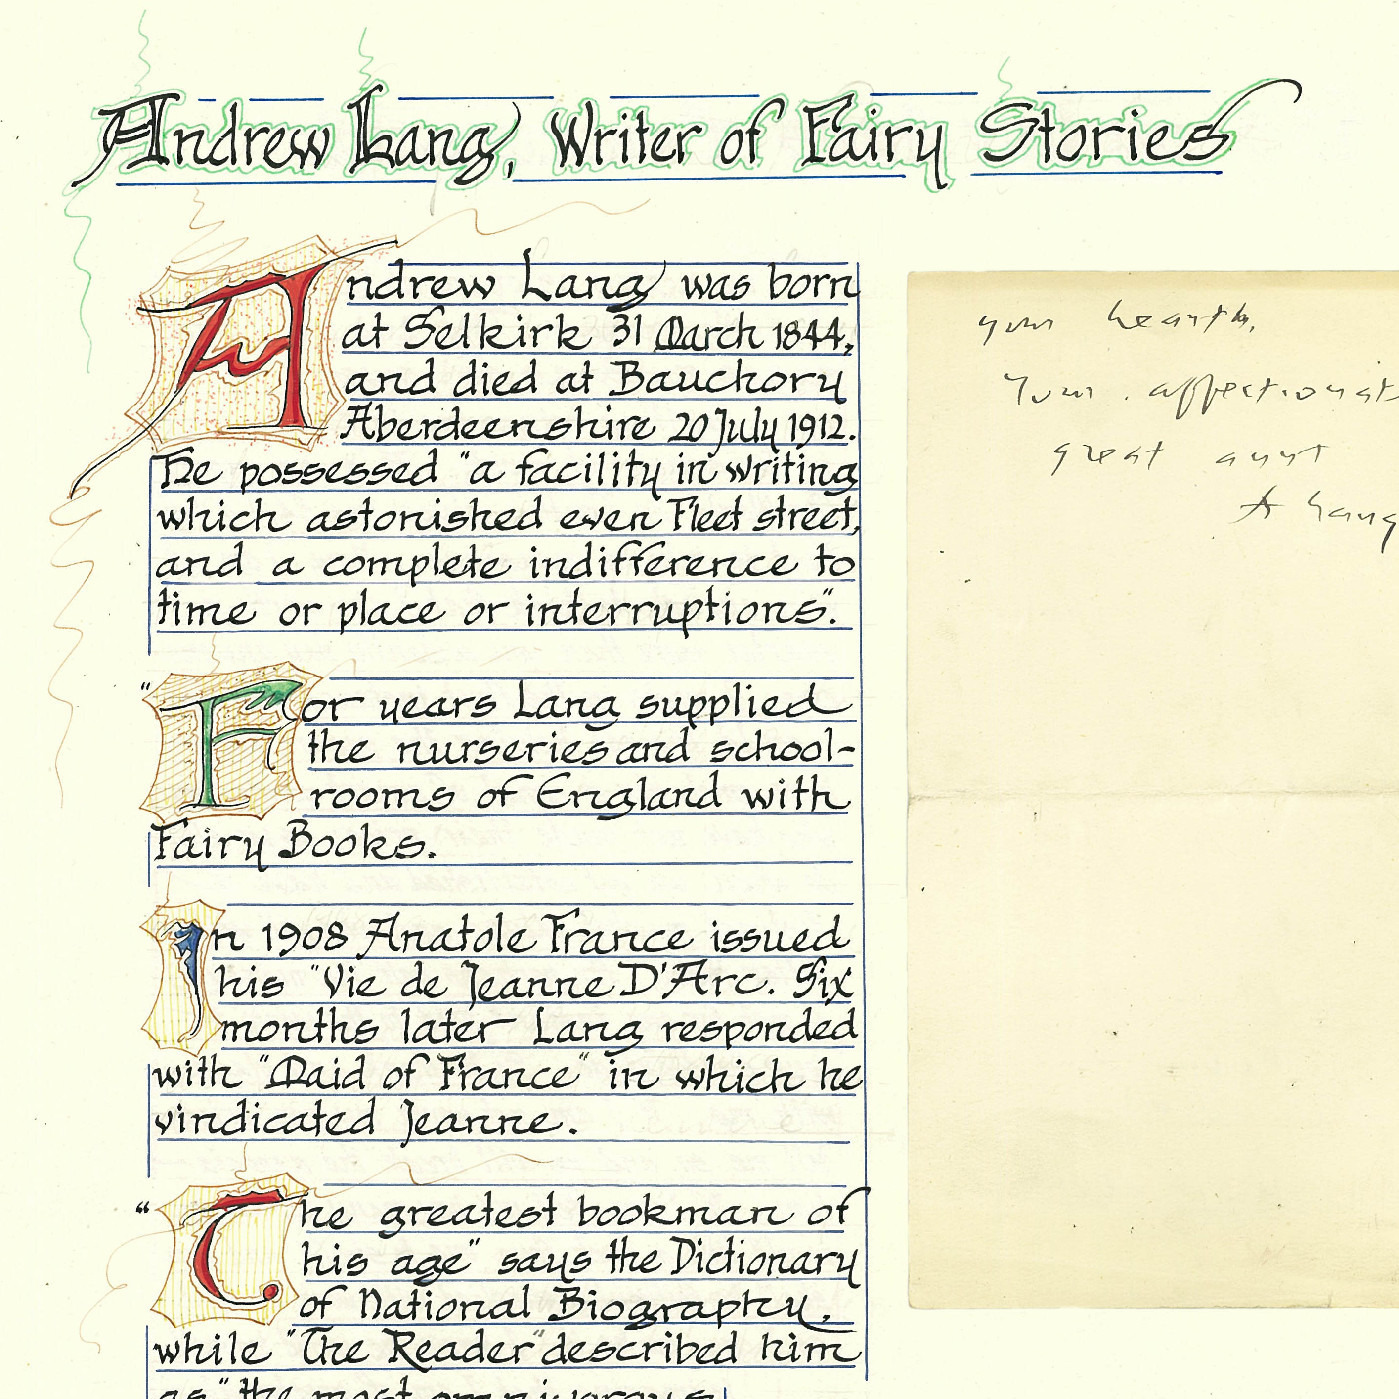 Andrew Lang, Writer of Fairy Stories
Andrew Lang was born
at Selkirk 31 March 1844,
and died at Bauchory
Aberdeenshire 20 July 1912.
He possessed "a facility in writing
which astonished even Fleet street,
and a complete indifference to
time or place or interruptions".
"For years Lang supplied
the nurseries and school-
rooms of England with
Fairy Books.
In 1908 Anatole France issued
his "Vie de Jeanne D'Arc. Six
months later Lang responded
with "Maid of France" in which he
vindicated Jeanne.
"The greatest bookman of
his age" says the Dictionary
of National Biography,
while "The Reader" described him
as "the most omnivorous
your
Your affectionat
great aunt
A Lang